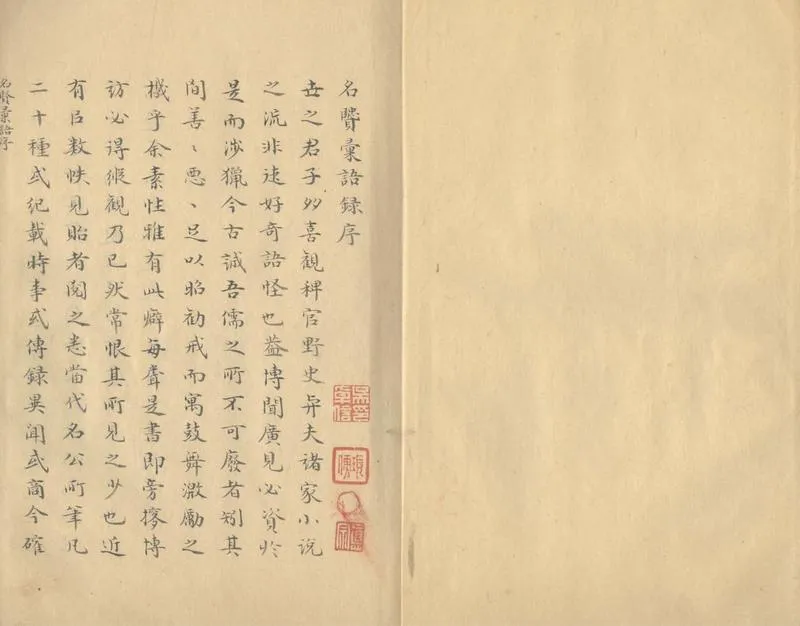 名賢彙語録序
世之君子多喜觀稗官野史與夫諸家小说
之流非述好奇語怪也蓋博聞廣見必資於
是而涉獵今古誠吾儒之所不可廢者矧其
間善〻悪〻足以昭勸戒而寓鼓舞激勵之
機乎余素性雅有此癖每是書即旁搜博
訪必得縱觀乃已然常恨其所見之少也近
有以數帙見貽者閱之悉當代名公所筆凡
二十種或紀載時事或傳録異聞或商今確
名賢彙語序